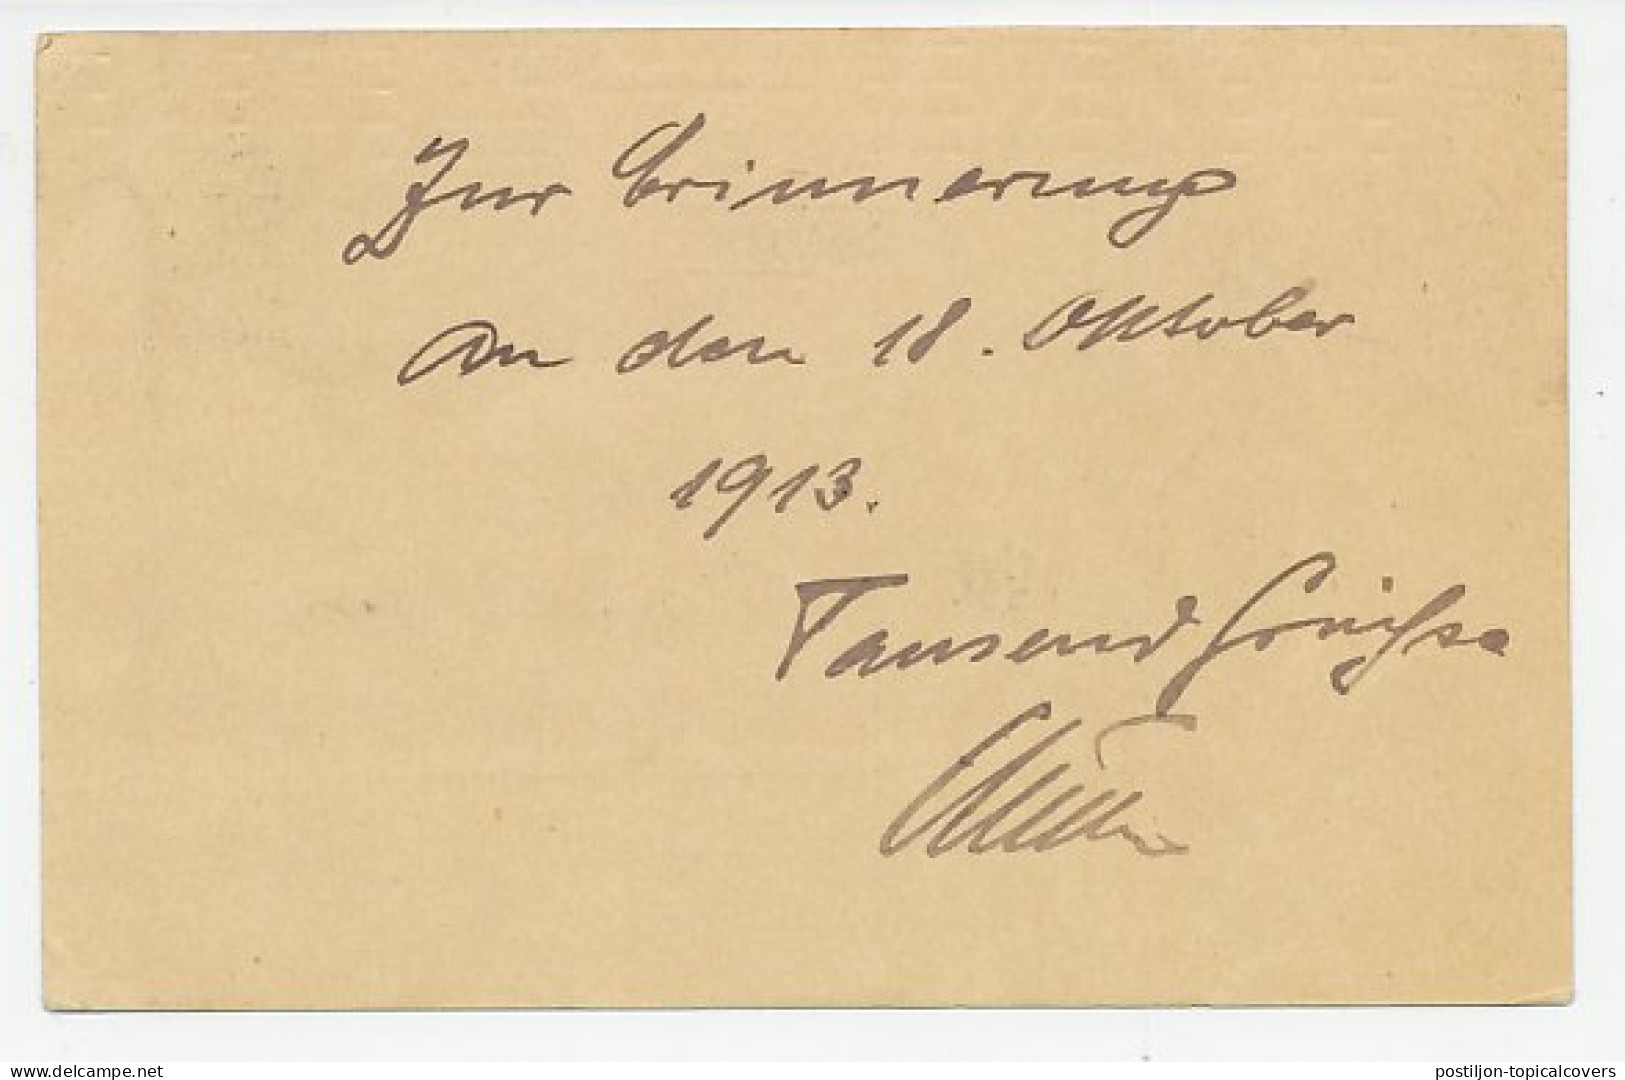 Zur Erinnerung
an den 18. Oktober
1913.
Tausend Grüsse
CLICK & ZOOM
postiljon-topicalcovers